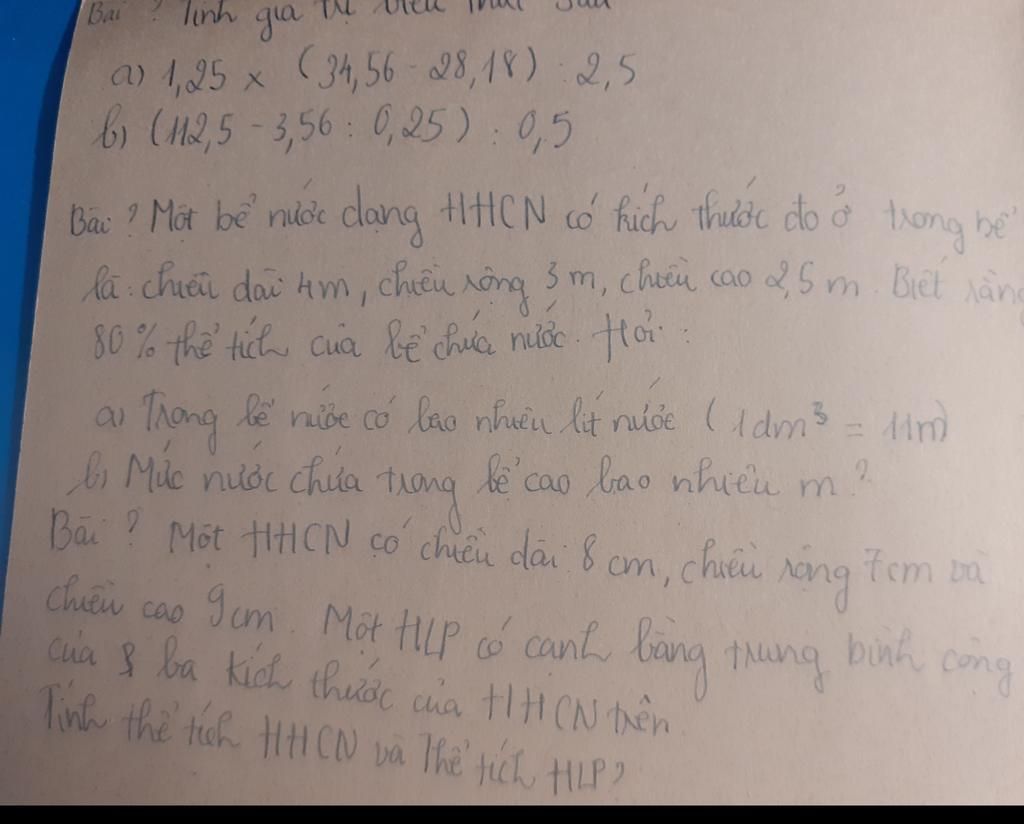 Bài ? Tính giá trị biểu thức sau
a) 1,25 x (34,56 - 28,18) : 2,5
b) (112,5 - 3,56 : 0,25) : 0,5
Bài ? Một bể nước dạng HHCN có kích thước đo ở trong bể
là: chiều dài 4m, chiều rộng 3 m, chiều cao 2,5 m. Biết rằng
80% thể tích của bể chứa nước. Hỏi:
a) Trong bể nước có bao nhiêu lít nước (1dm³ = 1lm)
b) Mức nước chứa trong bể cao bao nhiêu m?
Bài ? Một HHCN có chiều dài 8 cm, chiều rộng 7cm và
chiều cao 9cm. Một HLP có cạnh bằng trung bình cộng
của ba kích thước của HHCN trên.
Tính thể tích HHCN và Thể tích HLP?